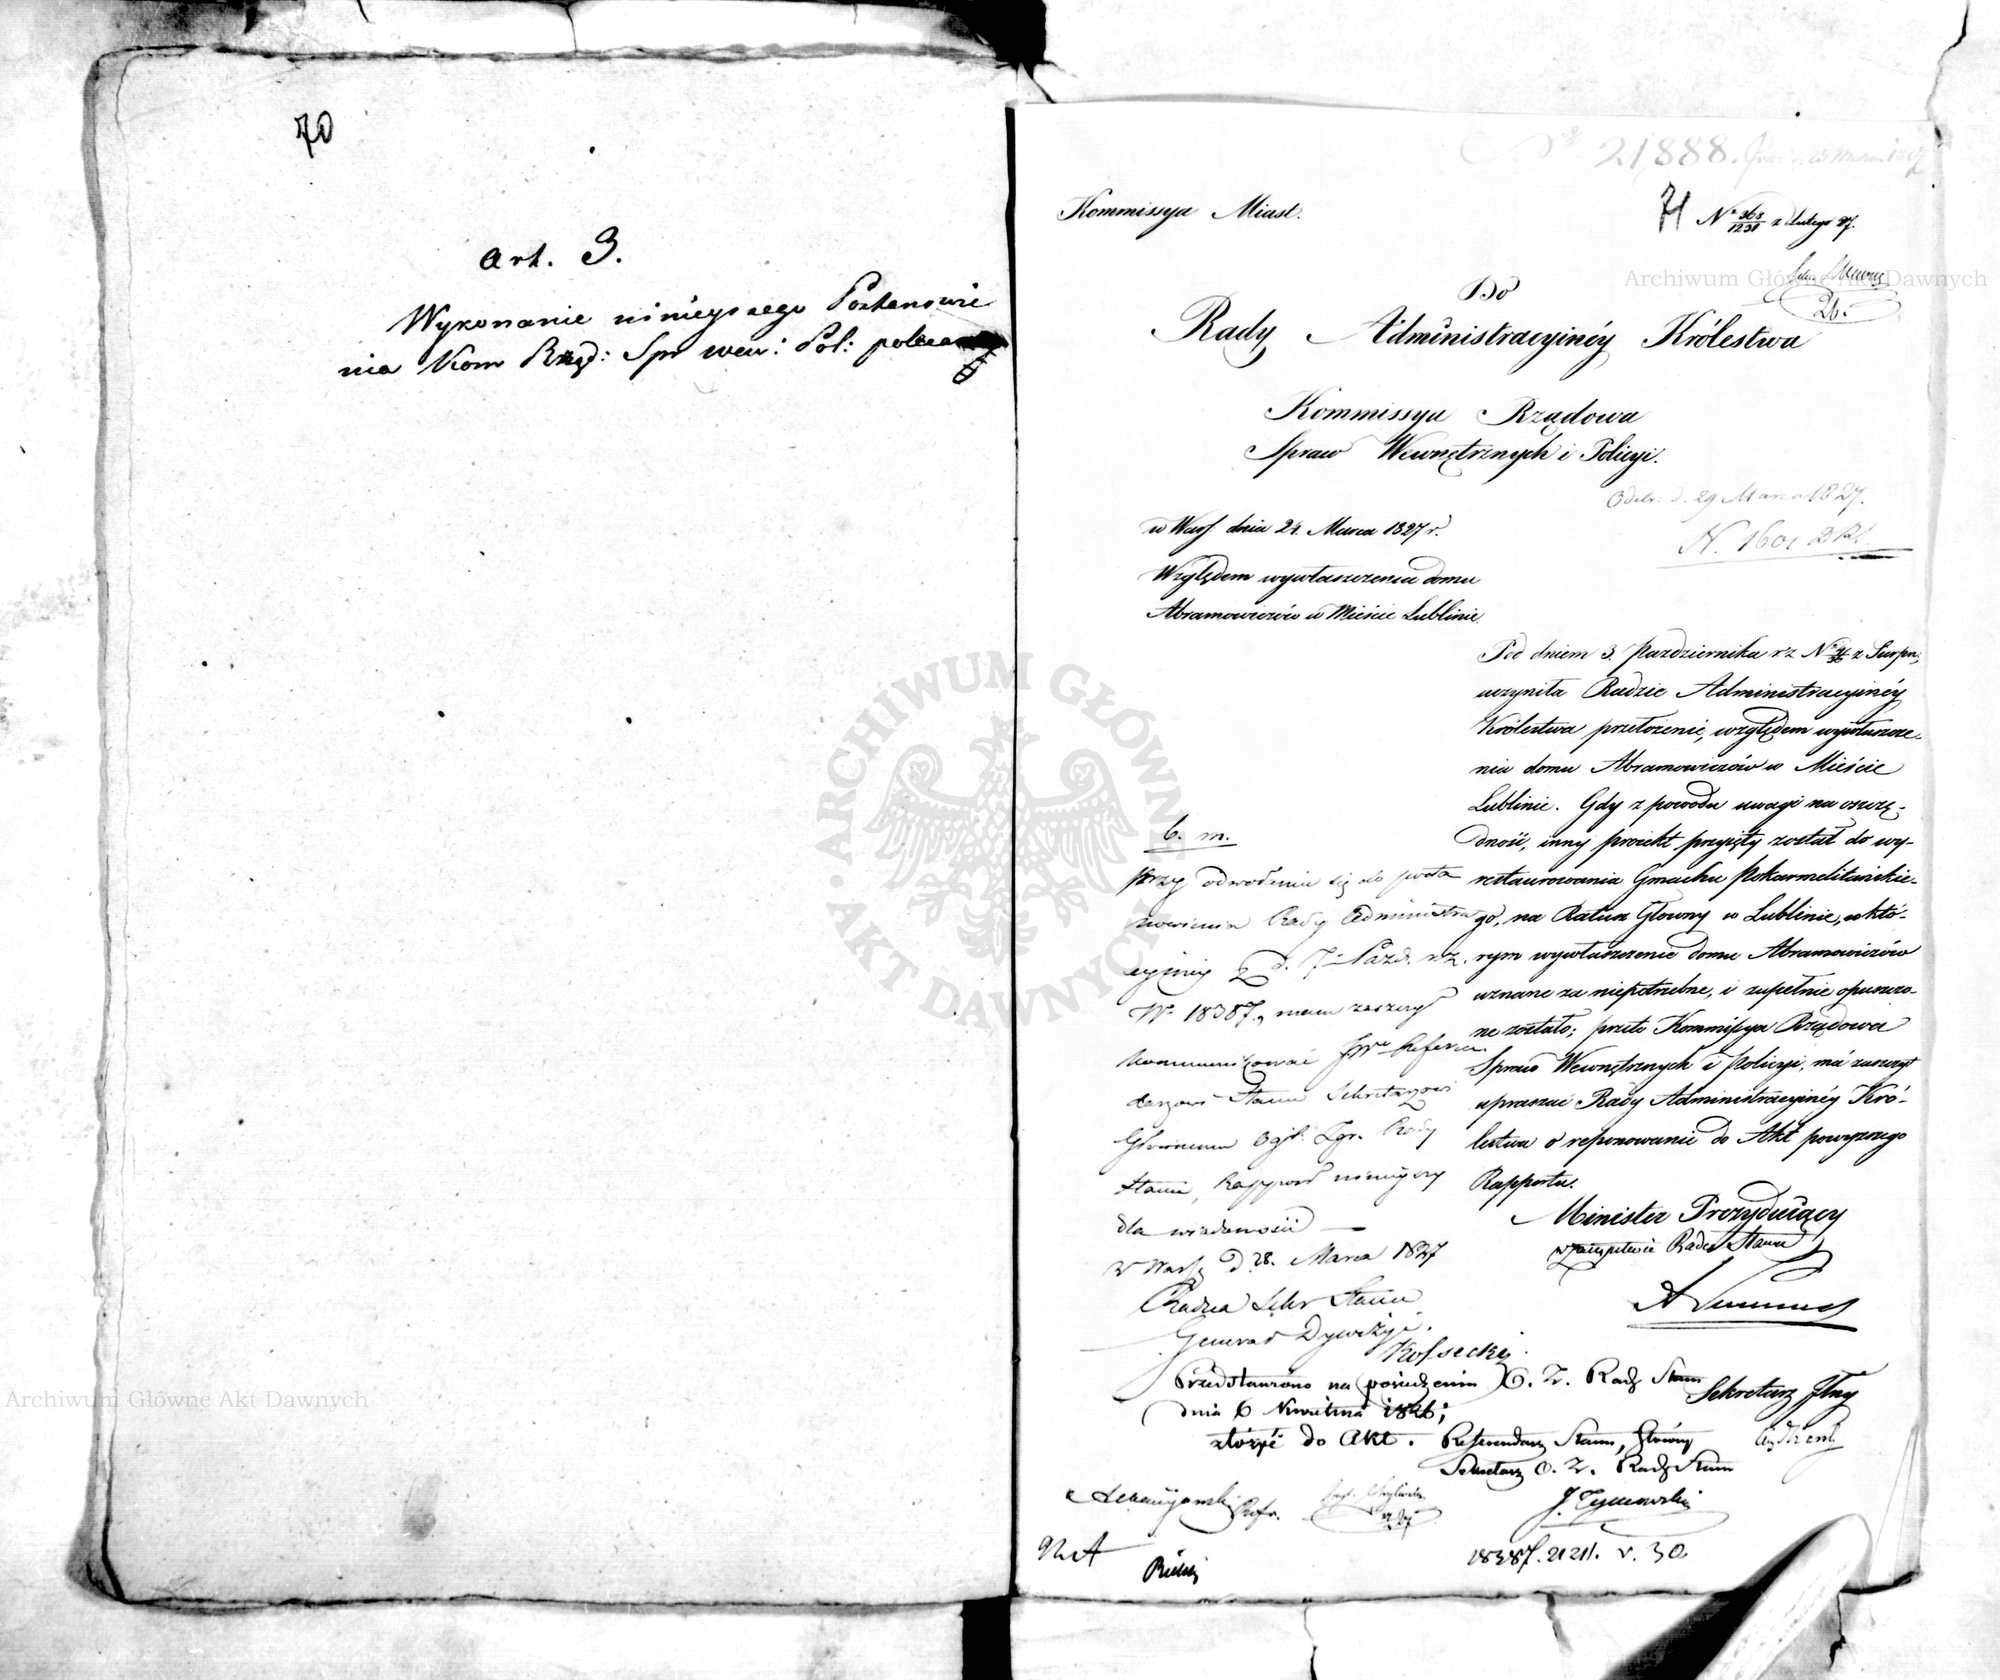 70
Art. 3.
Wykonanie ninieyszego Postanowie
nia Kom Rząd: Spr wew: Pol: poleca
No 21,888.
Kommissya Miast.
71 No 365/1231 z Lutego 27.
26.
Do
Rady Administracyinéy Królestwa
Kommissya Rządowa
Spraw Wewnętrznych i Policyi.
Odebr: d. 29 Marca 1827.
N. 1601
w Warsz. dnia 24. Marca 1827 r.
Względem wywłaszczenia domu
Abramowiczów w Mieście Lublinie.
Pod dniem 3. Października r z No z Sierpn;
uczyniła Radzie Administracyinéy
Królestwa przełożenie, względem wywłaszcze-
nia domu Abramowiczów w Mieście
Lublinie. Gdy z powodu uwagi na oszczę-
dność, inny proiekt przyięty został do wy-
restaurowania Gmachu Pokarmelitańskie-
go, na Ratusz Główny w Lublinie, w któ-
rym wywłaszczenie domu Abramowiczów
uznane za niepotrzebne, i zupełnie opuszczo-
ne zostało; przeto Kommissya Rządowa
Spraw Wewnętrznych i Policyi, má zaszczyt
upraszać Rady Administracyinéy Kró-
lestwa o reponowanie do Akt powyższego
Rapportu.
Minister Prezyduiący
w zastępstwie Radca Stanu
Sekretarz Jlny
b. m.
przy odwołaniu się do posta
nowienia Rady Administra
cyjney z d. 7 Paźd. r. z.
No 18387, mam zaszczyt
kommunikować JWu Referen
darzowi Stanu Sekretarzowi
Głównemu Ogól: Zgr. Rady
Stanu, Rapport ninieyszy
dla wiadomości
w Warsz. d. 28. Marca 1827
Radca Sekr Stanu
Generał Dywizyi.
Kossecki
Przedstawiono na posiedzeniu O. Z. Rady Stanu
dnia 6 Kwietnia
złożyć do Akt.
Referendarz Stanu, Główny
Sekretarz O. Z. Rady Stanu
J. Tymowski
18387. 21211. v. 30
Archiwum Główne Akt Dawnych
Archiwum Główne Akt Dawnych
ARCHIWUM GŁÓWNE AKT DAWNYCH